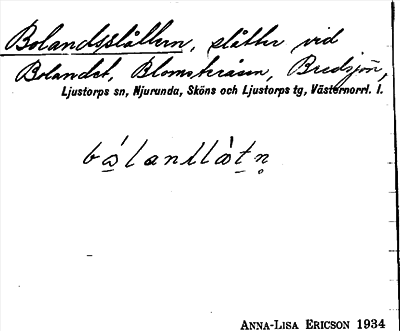 Bolandsslåttern, slåtter vid
Bolandet, Blomsteråsen, Bredsjön,
Ljustorps sn, Njurunda, Sköns och Ljustorps tg, Västernorrl. l.
ANNA-LISA ERICSON 1934